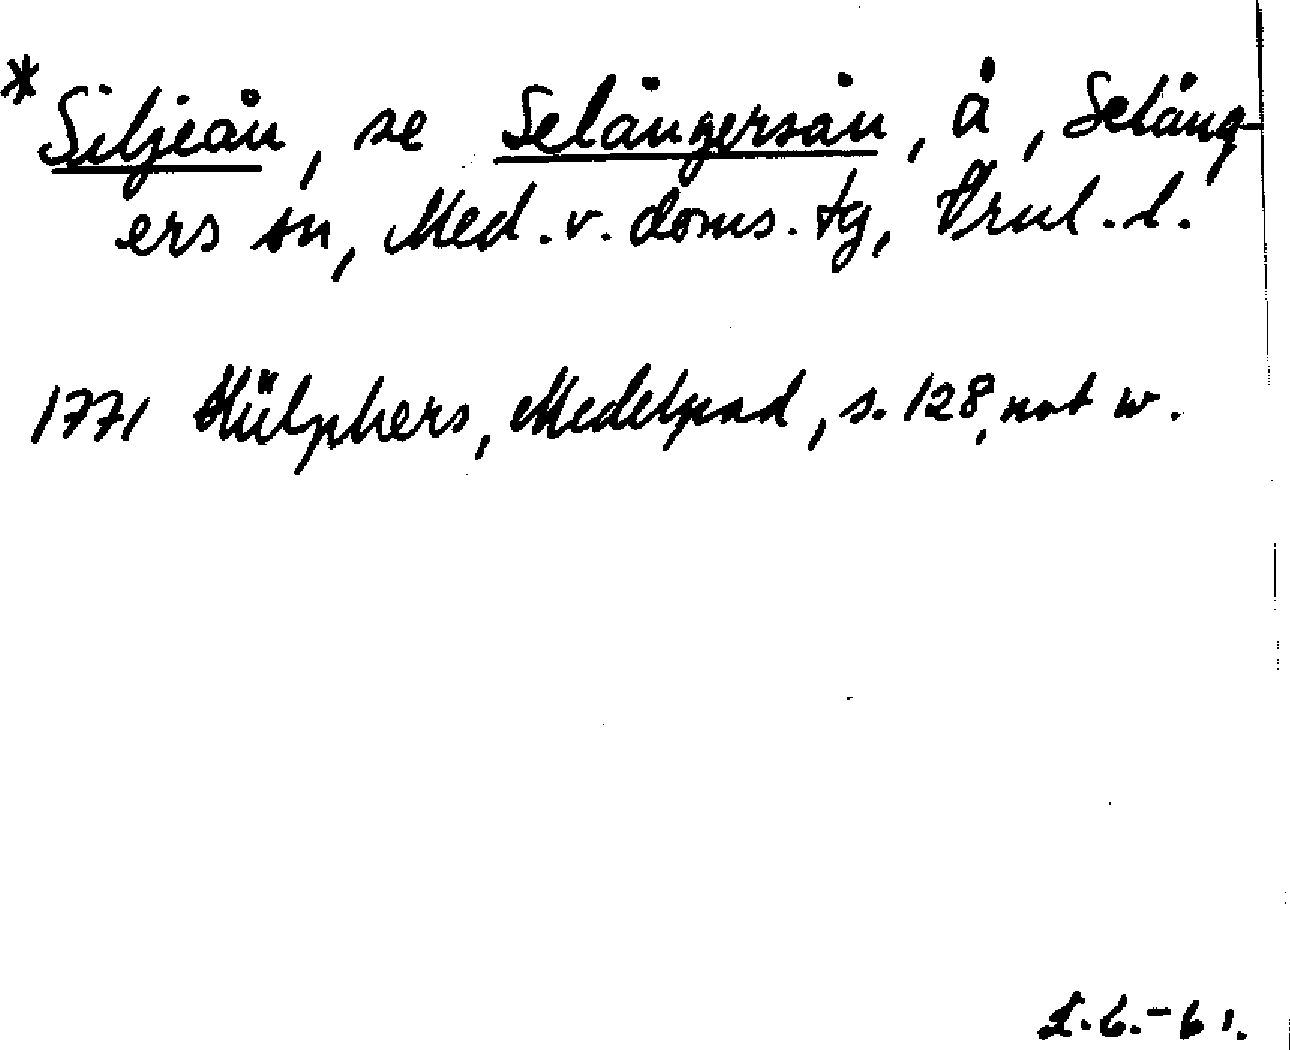 * Siljeån, se Selångersån, å, Selång-
ers sn, Med. v. doms. tg, Vrnl. l.
1771 Hülphers, Medelpad, s. 128, not w.
L.C.-61.